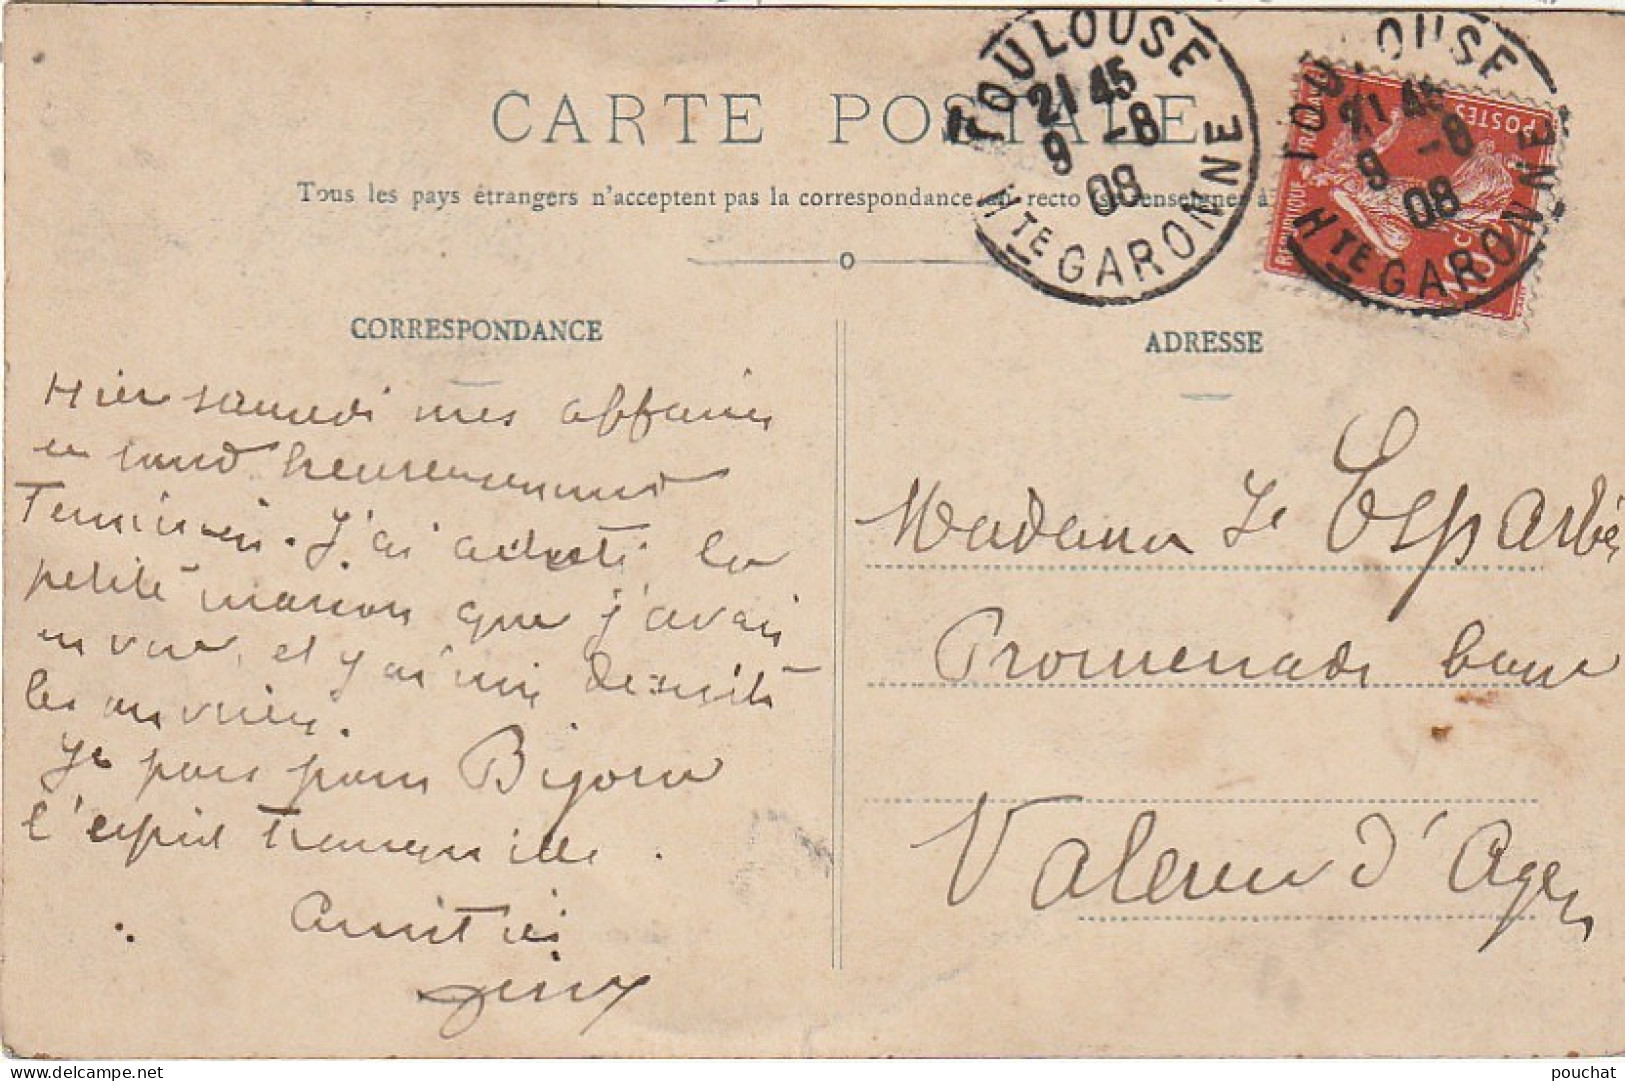 CARTE POSTALE
Tous les pays étrangers n'acceptent pas la correspondance au recto (se renseigner à
TOULOUSE
21 45
9 -8
08
Hte GARONNE
TOULOUSE
21 45
9 -8
08
Hte GARONNE
REPUBLIQUE FRANÇAISE
POSTES
10c
CORRESPONDANCE
ADRESSE
Hier samedi mes affaires
se sont heureusement
Terminées. J'ai acheté la
petite maison que j'avais
en vue, et j'ai mis de suite
les
Je pars pour Bigorre
l'esprit tranquille.
Amitiés
Madame Esparbès
Promenade basse
Valence d'Agen
delcampe.net
pouchat